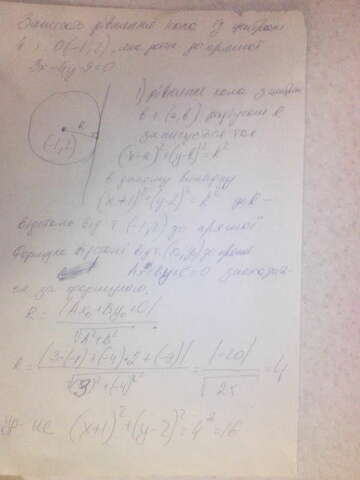 Записати рівняння кола із центром
в т. O(-1,2), яка до прямої
3x-4y-9=0
R
(-1,2)
1) рівняння кола з центром
в т. (a,b) радіусом R
записується так
(x-a)²+(y-b)²=R²
в даному випадку
(x+1)²+(y-2)²=R² де R-
відстань від т. (-1,2) до прямої
Формула відстані від т. (x₀,y₀) до прямої
Ax+By+C=0 знаходи-
ся за формулою.
R = |Ax₀+By₀+C| / √A²+B²
R = |3·(-1)+(-4)·2+(-9)| / √(3)²+(-4)² = |-20| / √25 = 4
(x+1)²+(y-2)²=4²=16